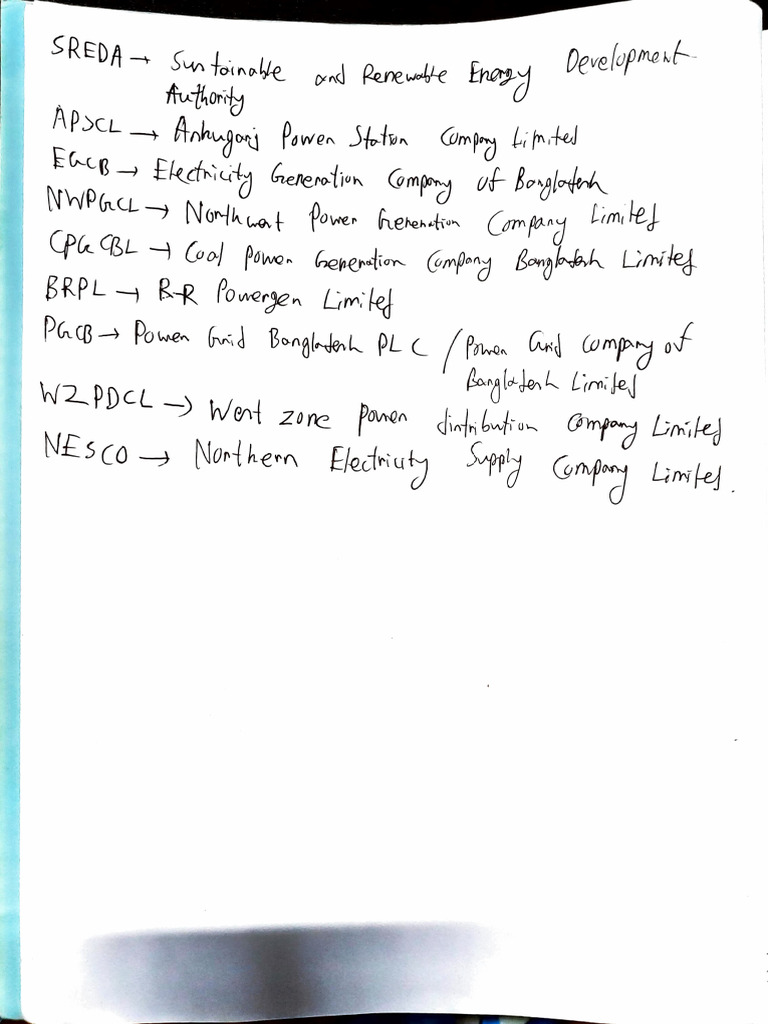 SREDA → Sustainable and Renewable Energy Development
Authority
APSCL → Ashuganj Power Station Company Limited
EGCB → Electricity Generation Company of Bangladesh
NWPGCL → Northwest Power Generation Company Limited
CPGCBL → Coal Power Generation Company Bangladesh Limited
BRPL → B-R Powergen Limited
PGCB → Power Grid Bangladesh PLC / Power Grid Company of
Bangladesh Limited
WZPDCL → West zone power distribution Company Limited
NESCO → Northern Electricity Supply Company Limited.